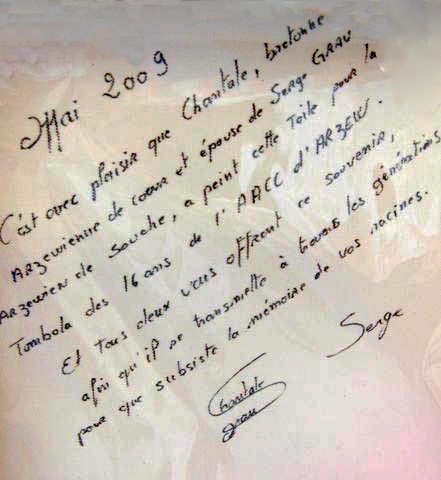 Mai 2009
C'est avec plaisir que Chantale, bretonne
ARZEWienne de coeur et épouse de Serge GRAU
ARZEWien de Souche, a peint cette Toile pour la
Tombola des 16 ans de l'AACC d'ARZEW.
Et Tous deux vous offrent ce souvenir,
afin qu'il se transmette à travers les générations
pour que subsiste la mémoire de vos racines.
Chantale
Grau
Serge